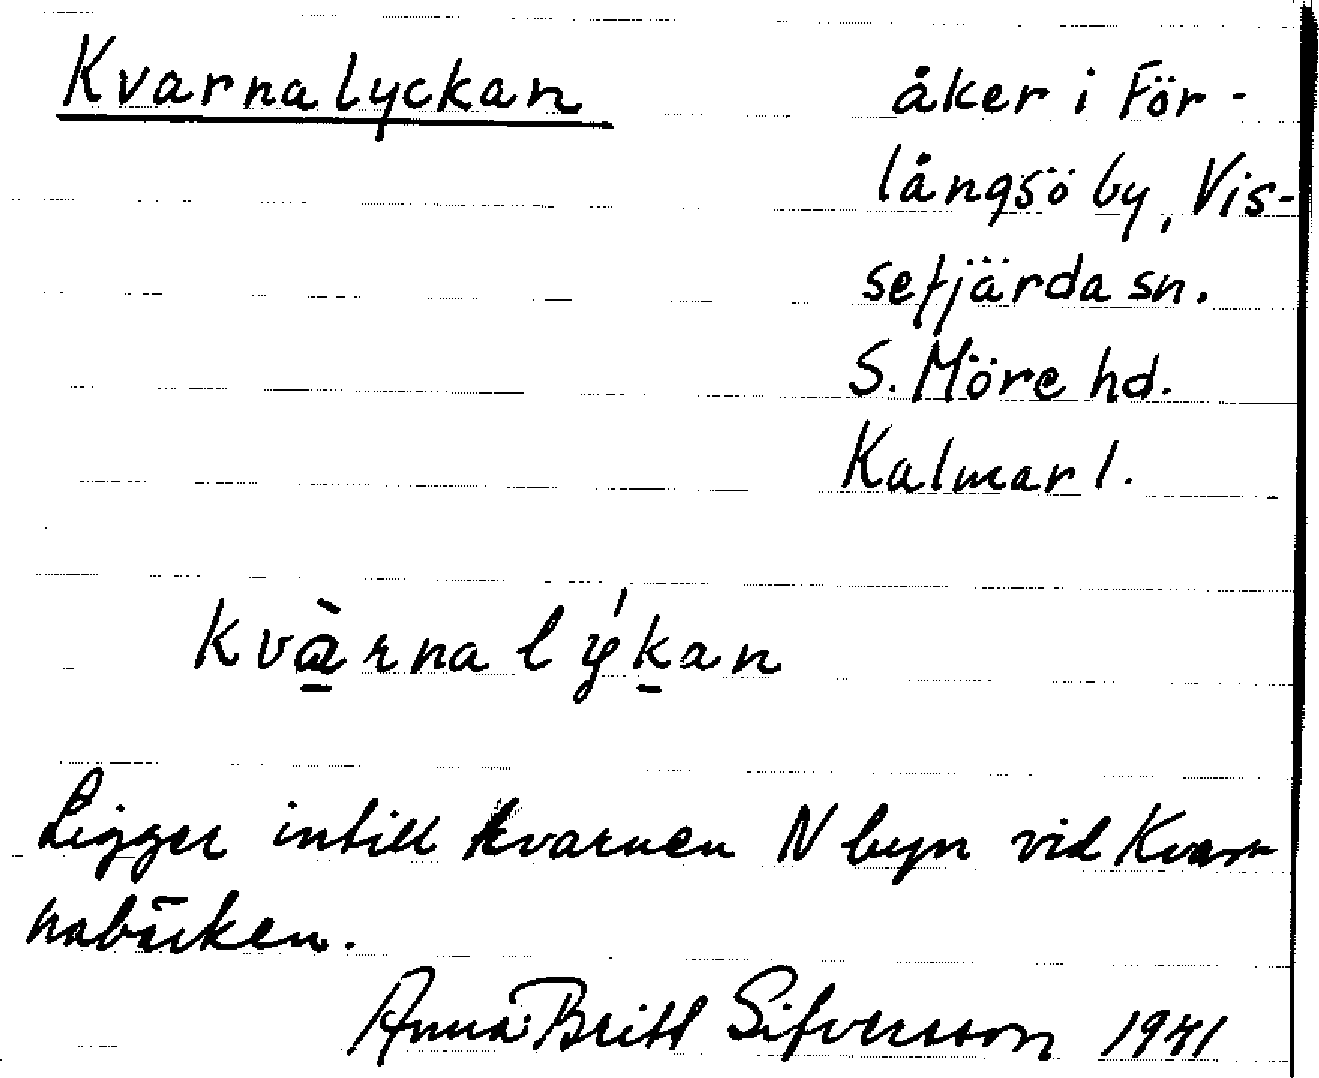 Kvarnalyckan
åker i För-
långsö by, Vis-
sefjärda sn.
S. Möre hd.
Kalmar l.
kvàrnalýkan
Ligger intill kvarnen N byn vid Kvar-
nabäcken.
Anna-Britt Sifversson 1941